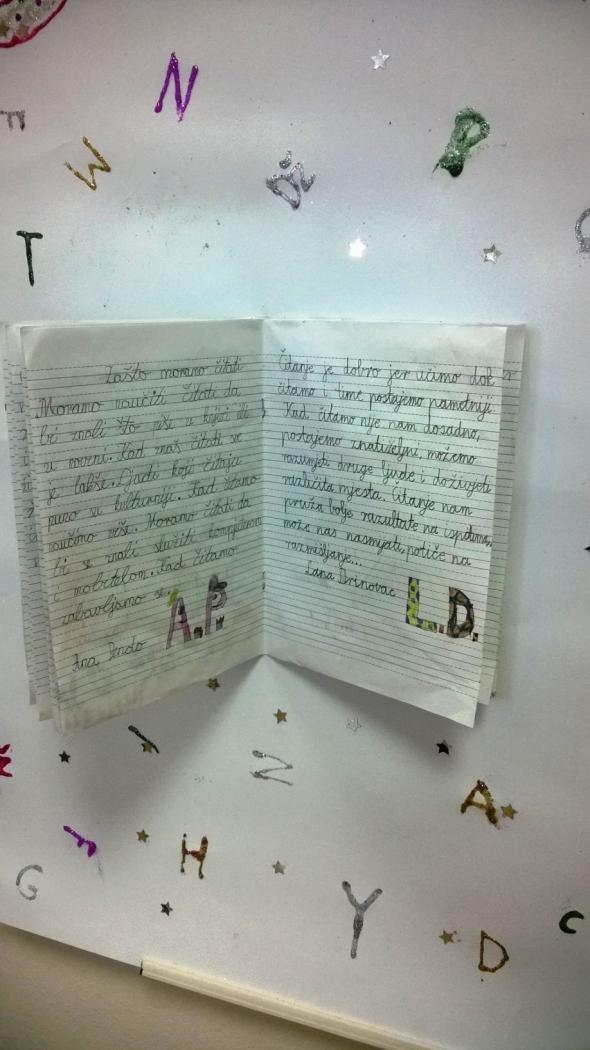 N
P
W
Ž
T
Zašto moramo čitati
Moramo naučiti čitati da
bi znali što piše u knjizi ili
u novini. Kad znaš čitati sve
je lakše. Ljudi koji čitaju
puno su kulturniji. Kad čitamo
naučimo više. Moramo čitati da
bi se znali služiti kompjuterom
i mobitelom. Kad čitamo
zabavljamo se.
A.P.
Ana Pendo
Čitanje je dobro jer učimo dok
čitamo i time postajemo pametniji.
Kad čitamo nije nam dosadno,
postajemo znatiželjni, možemo
razumjeti druge ljude i doživjeti
različita mjesta. Čitanje nam
pruža bolje rezultate na ispitima,
može nas nasmijati, potiče na
razmišljanje...
Lana Drinovac
L.D.
Z
A
H
G
Y
D
C